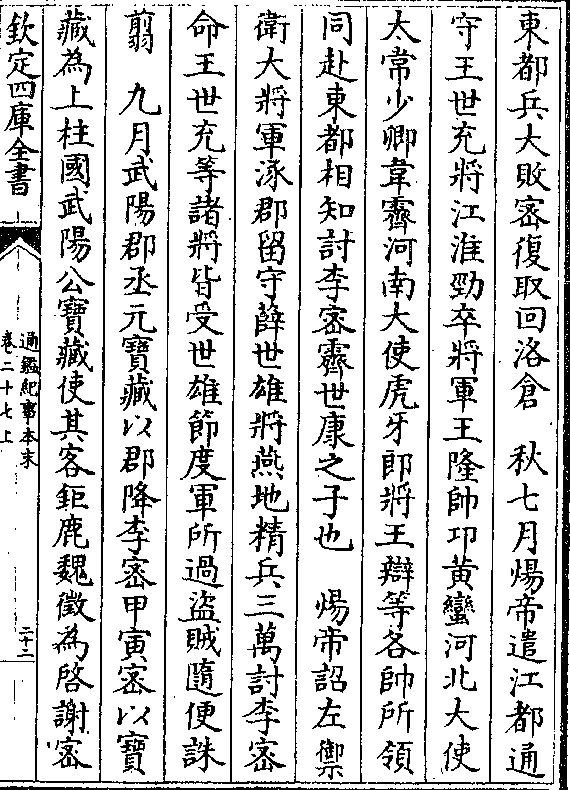 東都兵大敗密復取回洛倉　秋七月煬帝遣江都通
守王世充將江淮勁卒將軍王隆帥邛黄蠻河北大使
太常少卿韋霽河南大使虎牙郎將王辯等各帥所領
同赴東都相知討李密霽世康之子也　煬帝詔左禦
衛大將軍涿郡留守薛世雄將燕地精兵三萬討李密
命王世充等諸將皆受世雄節度軍所過盗賊隨便誅
翦　九月武陽郡丞元寶藏以郡降李密甲寅密以寶
藏為上柱國武陽公寶藏使其客鉅鹿魏徵為啓謝密
欽定四庫全書
通鑑紀事本末
卷二十七上
二十二